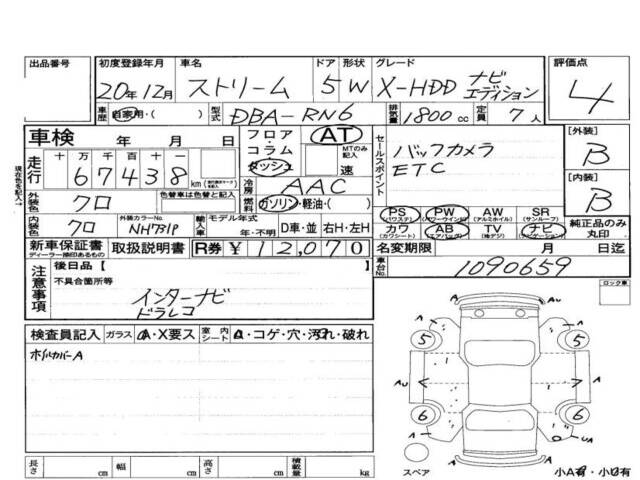 出品番号 初度登録年月 車名 ドア 形状 グレード 評価点
20年12月 ストリーム 5 W X-HDD ナビエディション 4
車歴 自家用・( ) 型式 DBA-RN6 排気量 1800 cc 定員 7 人
車検 年 月 日 フロア・コラム ダッシュ AT MTのみ記入 速
走行 十 万 千 百 十 一
67438 km
現在色を記入→
外装色 クロ 色替車は色替と記入
冷房 AAC
燃料 ガソリン・軽油・( )
内装色 クロ 外装カラーNo. NH731P 輸入車 モデル年式 年・不明 D車・並 右H・左H
新車保証書 ディーラー捺印あるもの 取扱説明書 R券 ¥12,070
セールスポイント バックカメラ
ETC
[外装]
B
[内装]
B
PS (パワステ) PW (パワーウインド) AW (アルミホイル) SR (サンルーフ)
カワ (カワシート) AB (エアバッグ) TV (地デジ) ナビ (ナビゲーション)
純正品のみ丸印
名変期限 月 日迄
車台No. 1090659
注意事項 後日品【 】
不具合箇所等
インターナビ
ドラレコ
ロック車
検査員記入 ガラス A・X要ス 室内シート A・コゲ・穴・汚れ・破れ
ホイルカバーA
A A
5 5
AU A
6 6
A UA
スペア 小A有・小U有
長さ cm 幅 cm 高さ cm 積載量 kg